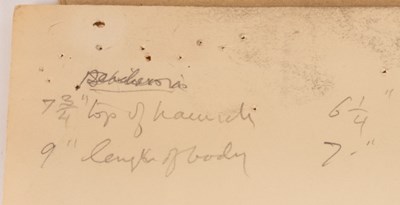 7 3/4" top of haunch 6 1/4"
9" length of body 7-"